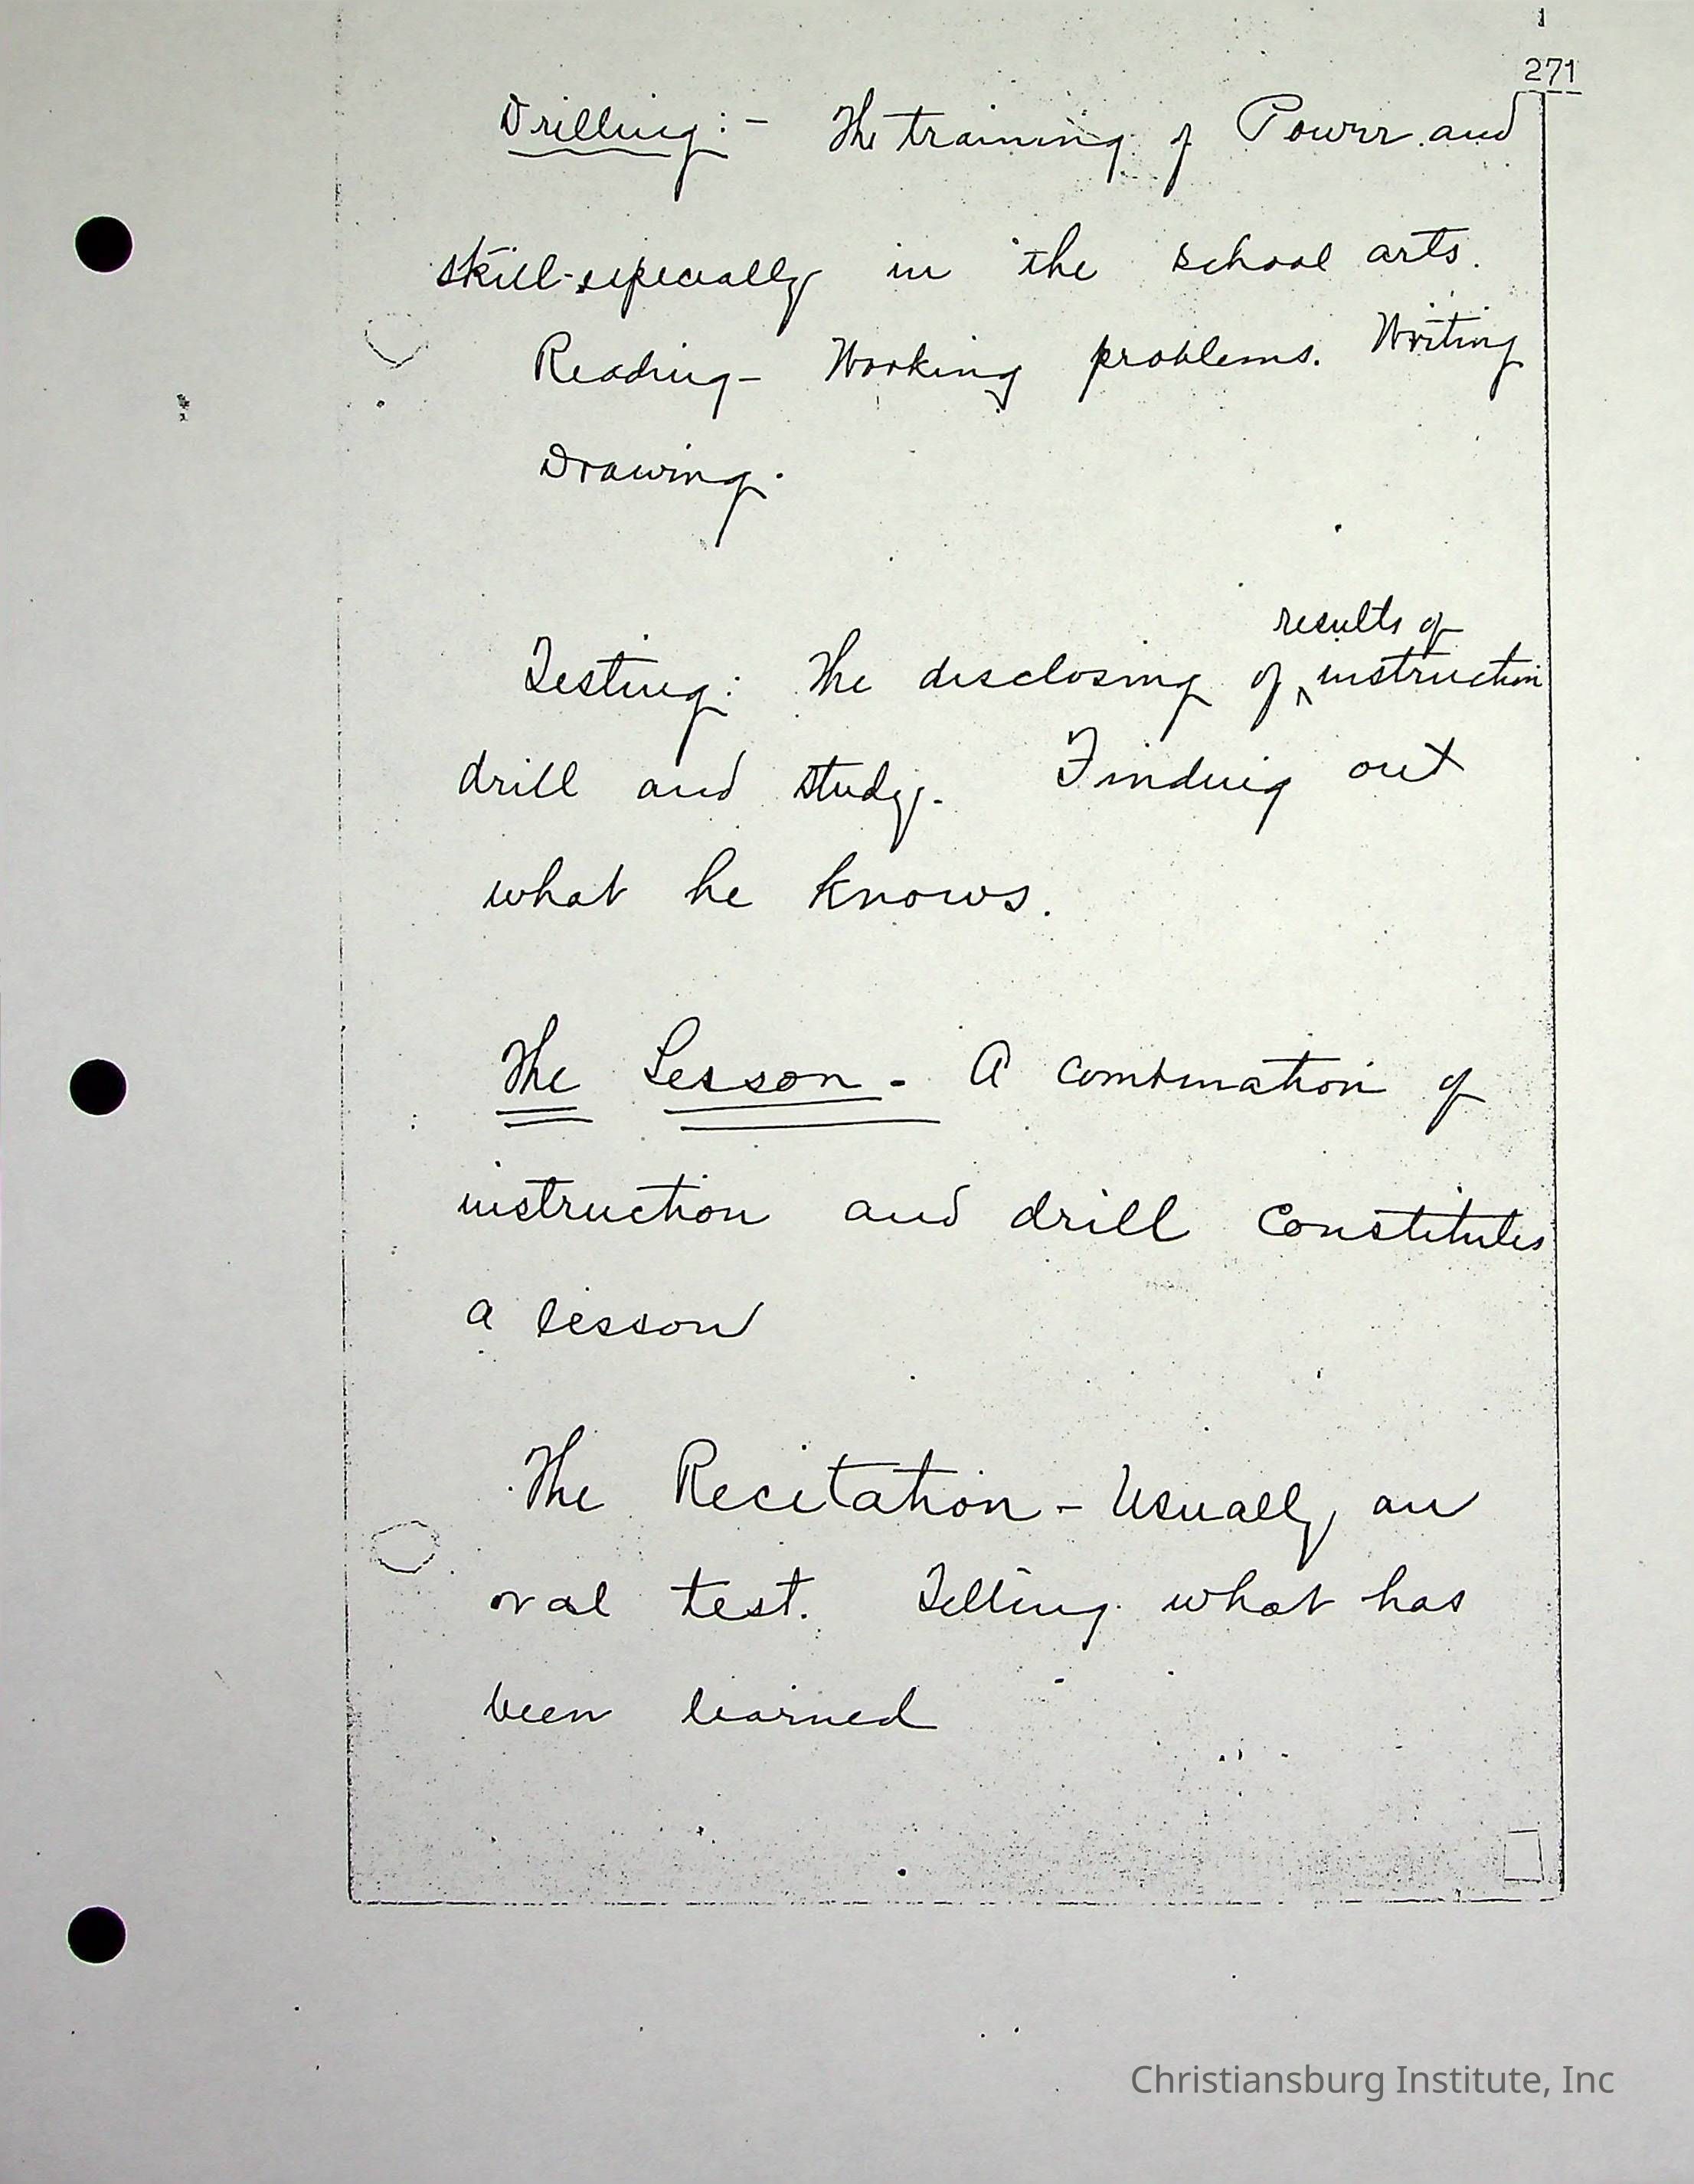 271
Drilling:- The training of Power and
skill-especially in the school arts.
Reading- Working problems. Writing
Drawing.
results of
Testing: The disclosing of ^ instruction
drill and study. Finding out
what he knows.
The Lesson - A combination of
instruction and drill constitutes
a lesson
The Recitation - Usually an
oral test. Telling what has
been learned
Christiansburg Institute, Inc